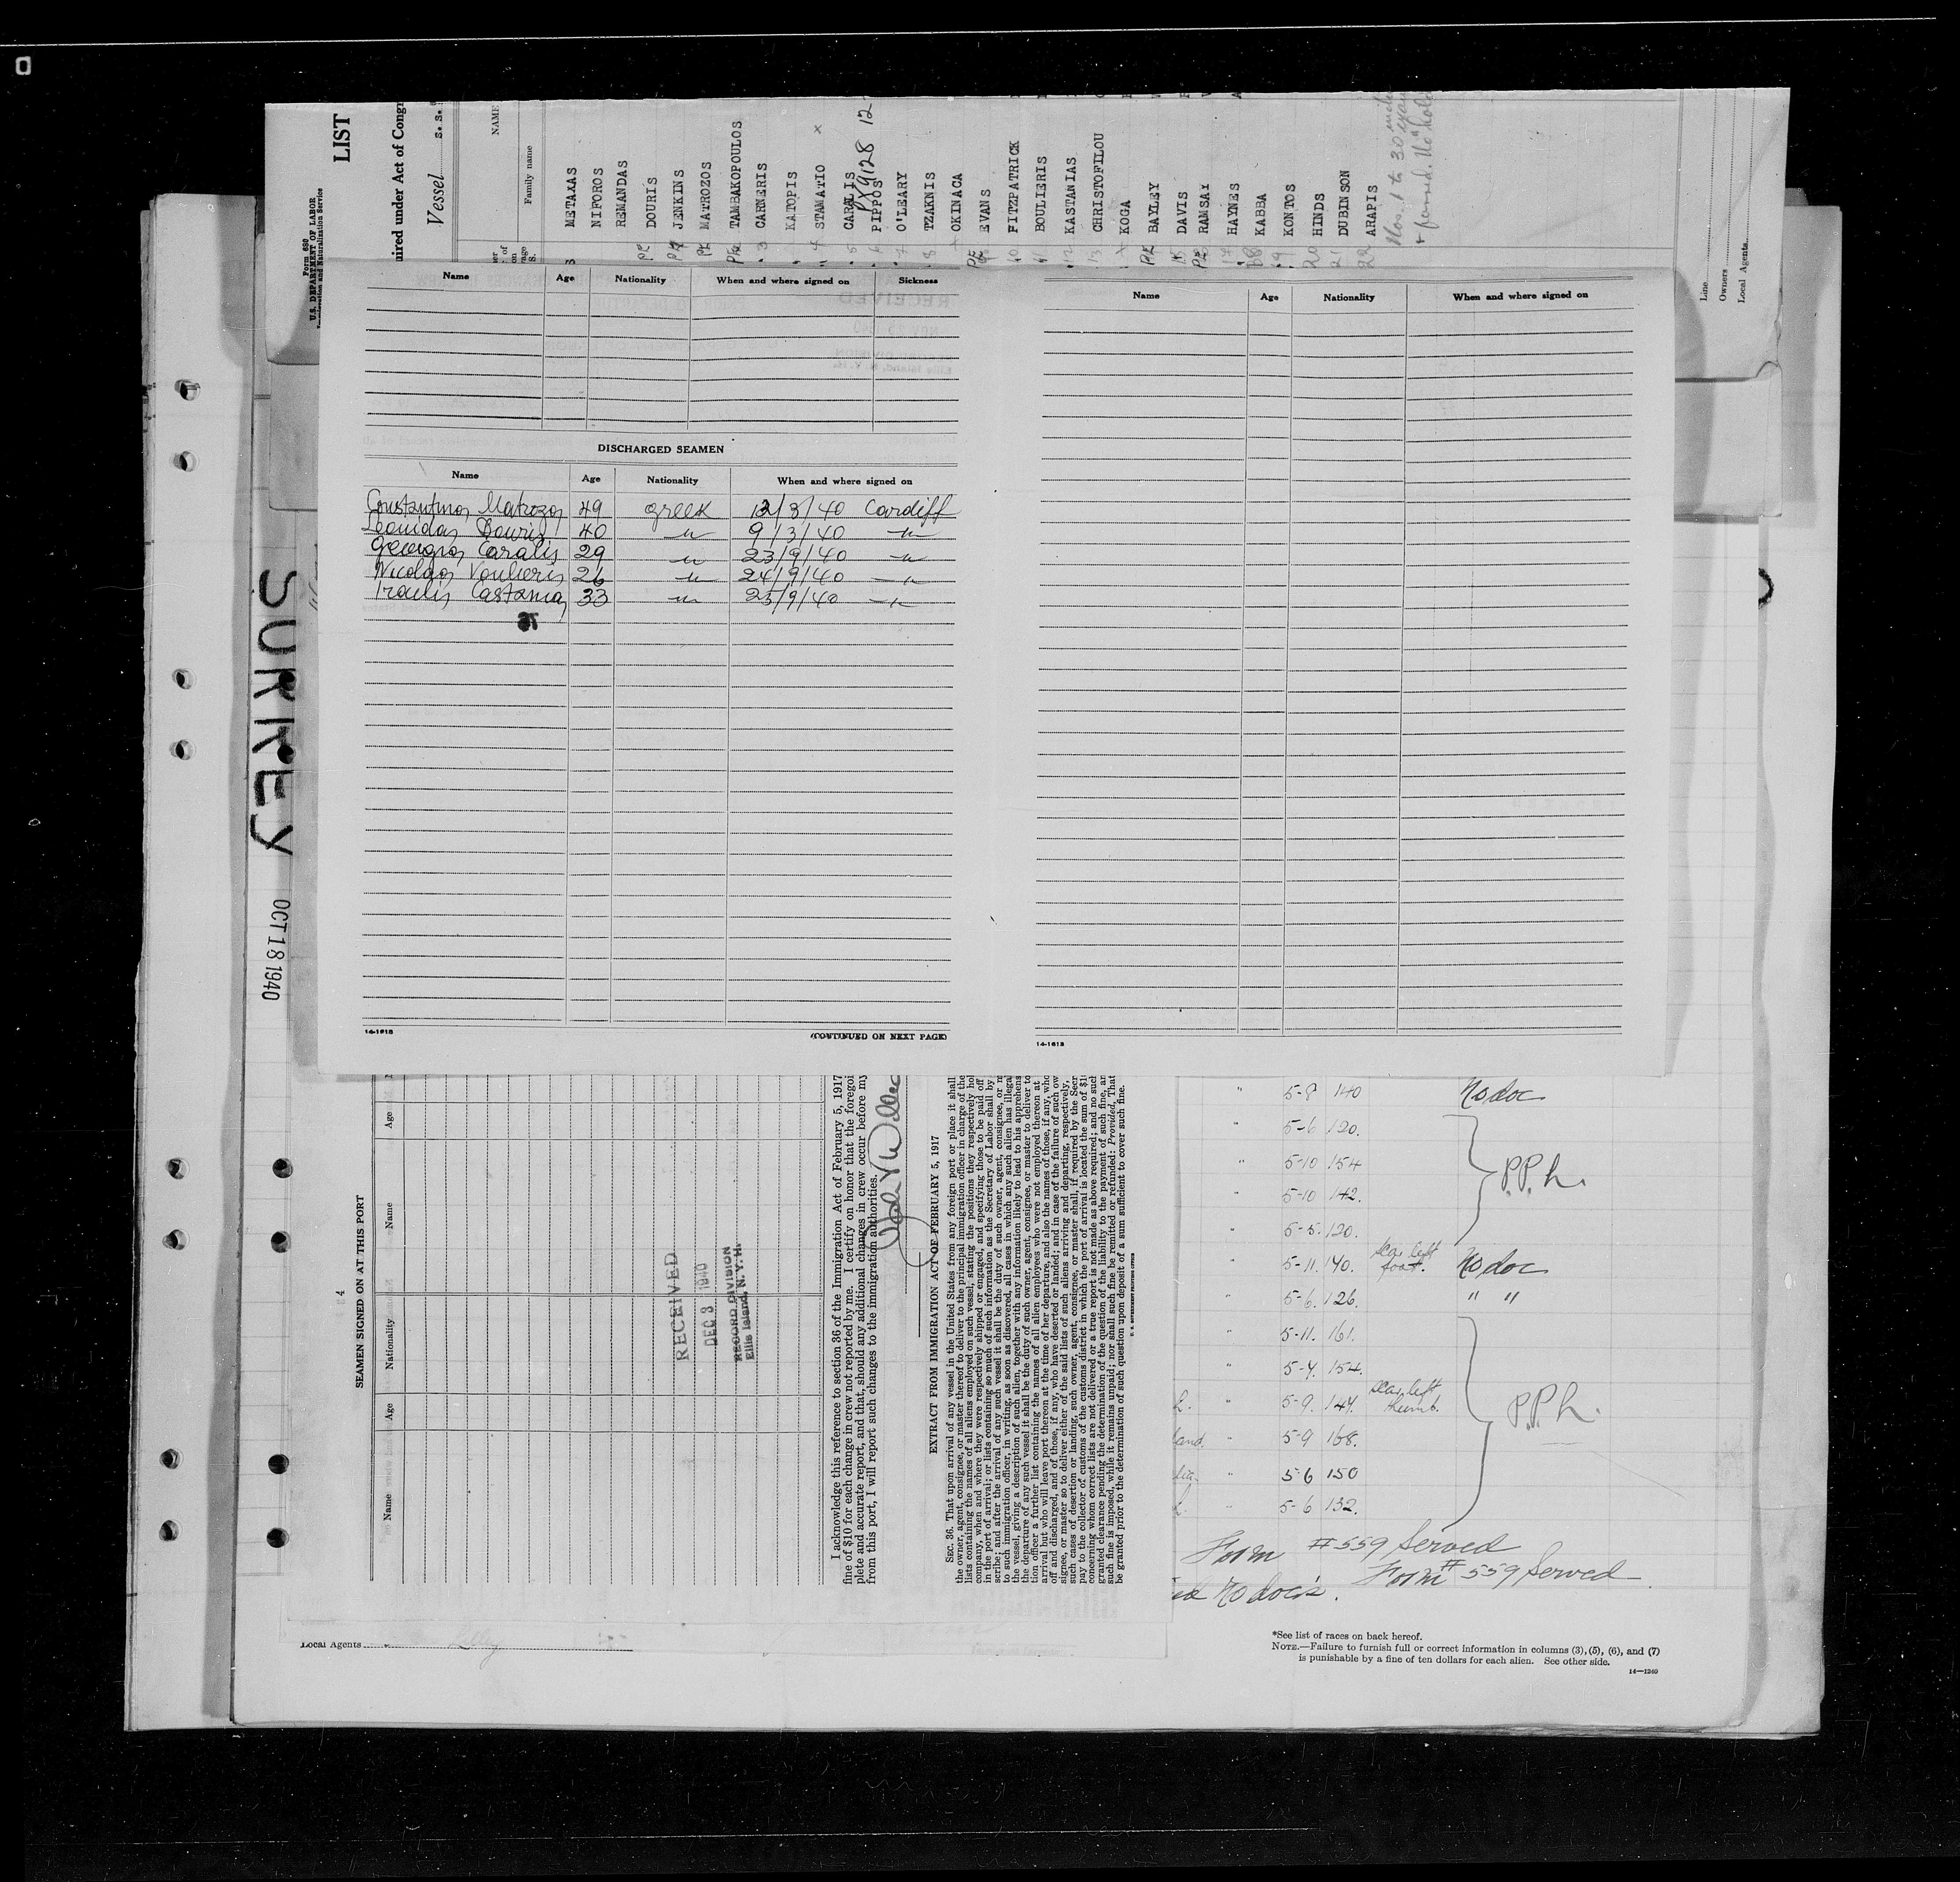 LIST
Form 680
U.S. DEPARTMENT OF LABOR
Immigration and Naturalization Service
uired under Act of Congr
Vessel S. S.
NAME
Family name
METAXAS
NIFOROS
REMANDAS
DOURIS
JENKINS
MATROZOS
TAMBAKOPOULOS
CARNERIS
KATOPIS
STAMATIO x
CARALIS
PIPPOS
O'LEARY
TZAKNIS
OKINACA
EVANS
FITZPATRICK
BOULIERIS
KASTANIAS
CHRISTOFILOU
KOGA
BAYLEY
DAVIS
RAMSAY
HAYNES
KABBA
KONTOS
HINDS
DUBINSON
ARAPIS
Line
Owners
Local Agents
Name Age Nationality When and where signed on Sickness
DISCHARGED SEAMEN
Name Age Nationality When and where signed on
Constantinos Matrozos 49 greek 12/3/40 Cardiff
Leonidas Douris 40 -"- 9/3/40 -"-
Georgios Caralis 29 -"- 23/9/40 -"-
Nicolaos Voulieris 26 -"- 24/9/40 -"-
Iraclis Castanias 33 -"- 25/9/40 -"-
14-1613
(CONTINUED ON NEXT PAGE)
Name Age Nationality When and where signed on
14-1613
SURREY
OCT 18 1940
SEAMEN SIGNED ON AT THIS PORT
Name Age Nationality Name Age
I acknowledge this reference to section 36 of the Immigration Act of February 5, 1917
fine of $10 for each change in crew not reported by me. I certify on honor that the foregoi
plete and accurate report, and that, should any additional changes in crew occur before my
from this port, I will report such changes to the immigration authorities.
RECEIVED
DEC 3 1940
RECORD DIVISION
Ellis Island, N. Y. H.
EXTRACT FROM IMMIGRATION ACT OF FEBRUARY 5, 1917
SEC. 36. That upon arrival of any vessel in the United States from any foreign port or place it shall
the owner, agent, consignee, or master thereof to deliver to the principal immigration officer in charge of the
lists containing the names of all aliens employed on such vessel, stating the positions they respectively hol
company, when and where they were respectively shipped or engaged, and specifying those to be paid off
in the port of arrival; or lists containing so much of such information as the Secretary of Labor shall by
scribe; and after the arrival of any such vessel it shall be the duty of such owner, agent, consignee, or m
to such immigration officer, in writing, as soon as discovered, all cases in which any such alien has illegal
the vessel, giving a description of such alien, together with any information likely to lead to his apprehens
the departure of any such vessel it shall be the duty of such owner, agent, consignee, or master to deliver to
tion officer a further list containing the names of all alien employees who were not employed thereon at
arrival but who will leave port thereon at the time of her departure, and also the names of those, if any, who
off and discharged, and of those, if any, who have deserted or landed; and in case of the failure of such ow
signee, or master so to deliver either of the said lists of such aliens arriving and departing, respectively,
such cases of desertion or landing, such owner, agent, consignee, or master shall, if required by the Secr
pay to the collector of customs of the customs district in which the port of arrival is located the sum of $1
concerning whom correct lists are not delivered or a true report is not made as above required; and no such
granted clearance pending the determination of the question of the liability to the payment of such fine, an
such fine is imposed, while it remains unpaid; nor shall such fine be remitted or refunded: Provided, That
be granted prior to the determination of such question upon deposit of a sum sufficient to cover such fine.
" 5-8 140 No doc
" 5-6 120.
" 5-10 154
" 5-10 142.
P.P.h.
" 5-5. 120.
" 5-11. 140. scar left foot. No doc
" 5-6. 126. " "
5-11. 161.
" 5-7. 154.
" 5-9. 147. scar left thumb.
P.P.h.
land. " 5-9 168.
" 5-6 150
" 5-6 132.
Form #559 Served
Form #559 Served
No doc's.
Local Agents
*See list of races on back hereof.
NOTE.—Failure to furnish full or correct information in columns (3), (5), (6), and (7)
is punishable by a fine of ten dollars for each alien. See other side.
14—1240